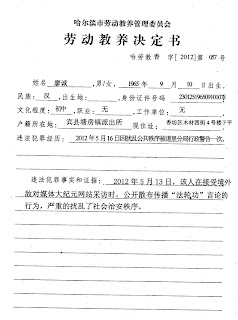 哈尔滨市劳动教养管理委员会
劳动教养决定书
哈劳教督 字[2012]第 057 号
姓名 廖诚 ,性别 男 , 1965 年 9 月 10 日出生,
民族: 汉 ,出生地: ,身份证件号码
文化程度: 初中 职业: 无 ,工作单位: 无
户籍所在地: 宾县塘房镇派出所 现住址: 香坊区木材西街4号楼下平
违法犯罪经历: 2012年5月16日因扰乱公共秩序被道里分局行政警告一次。
违法犯罪事实和证据: 2012 年 5 月 13 日,该人在接受境外
敌对媒体大纪元网站采访时,公开散布传播“法轮功”言论的
行为,严重的扰乱了社会治安秩序。